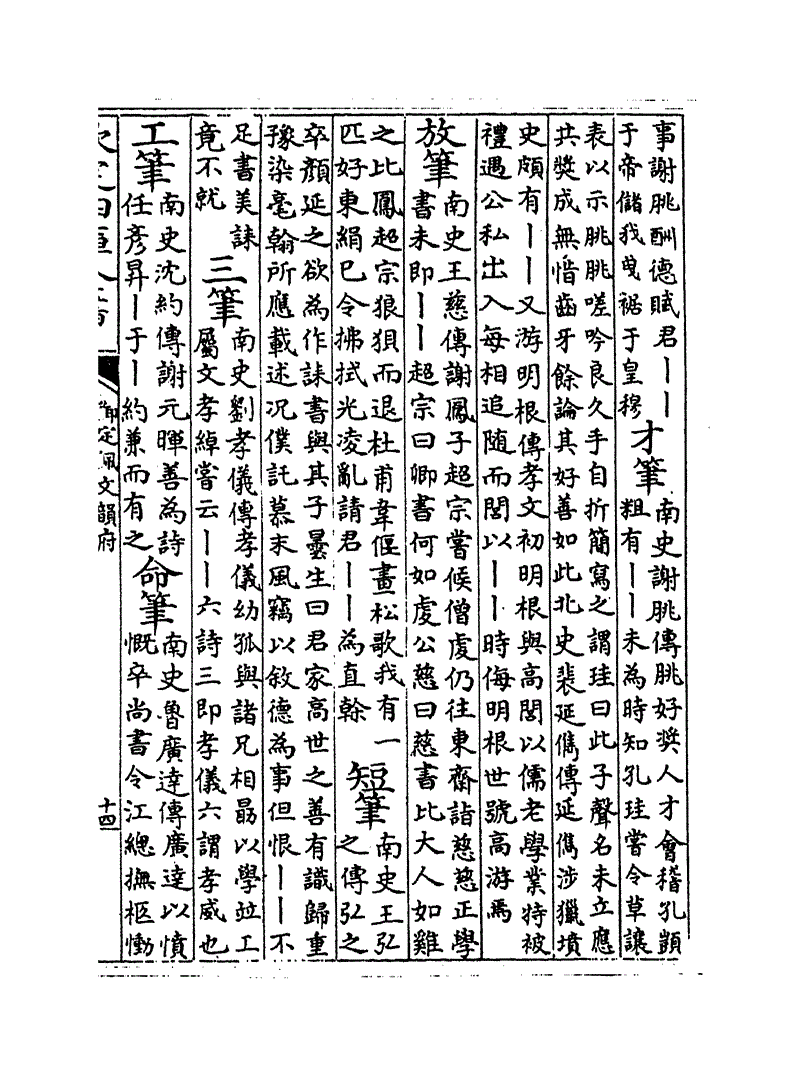 事謝朓酬德賦君丨丨
于帝儲我曳裾于皇穆
才筆
南史謝朓傳朓好奬人才會稽孔顗
粗有丨丨未為時知孔珪嘗令草讓
表以示朓朓嗟吟良久手自折簡寫之謂珪曰此子聲名未立應
共奬成無惜齒牙餘論其好善如此北史裴延儁傳延儁涉獵墳
史頗有丨丨又游明根傳孝文初明根與高閭以儒老學業特被
禮遇公私出入每相追随而閭以丨丨時侮明根世號高游焉
放筆
南史王慈傳謝鳳子超宗嘗候僧虔仍往東齋詣慈慈正學
書未即丨丨超宗曰卿書何如虔公慈曰慈書比大人如雞
之比鳳超宗狼狽而退杜甫韋偃畫松歌我有一
匹好東絹巳令拂拭光凌亂請君丨丨為直榦
短筆
南史王弘
之傳弘之
卒顏延之欲為作誄書與其子曇生曰君家高世之善有識歸重
豫染毫翰所應載述况僕託慕末風竊以敘德為事但恨丨丨不
足書美誄
竟不就
三筆
南史劉孝儀傳孝儀幼孤與諸兄相勗以學竝工
屬文孝綽嘗云丨丨六詩三即孝儀六謂孝威也
工筆
南史沈約傳謝元暉善為詩
任彥昇丨于丨約兼而有之
命筆
南史魯廣達傳廣達以憤
慨卒尚書令江總撫柩慟
欽定四庫全書
御定佩文韻府
十四